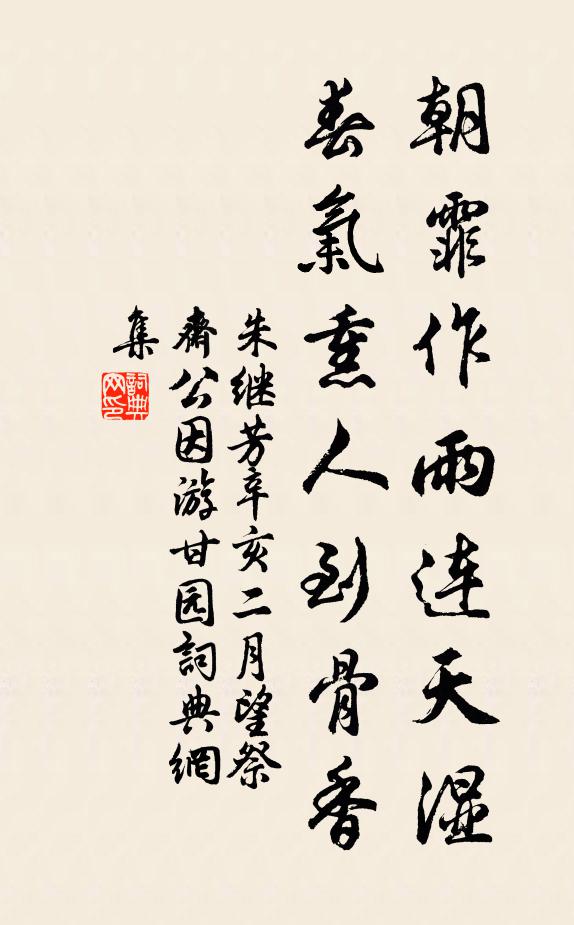 朝霏作雨連天濕
春氣熏人到骨香
朱继芳辛亥二月望祭
齋公因游甘园詞典網
集
詞典网印